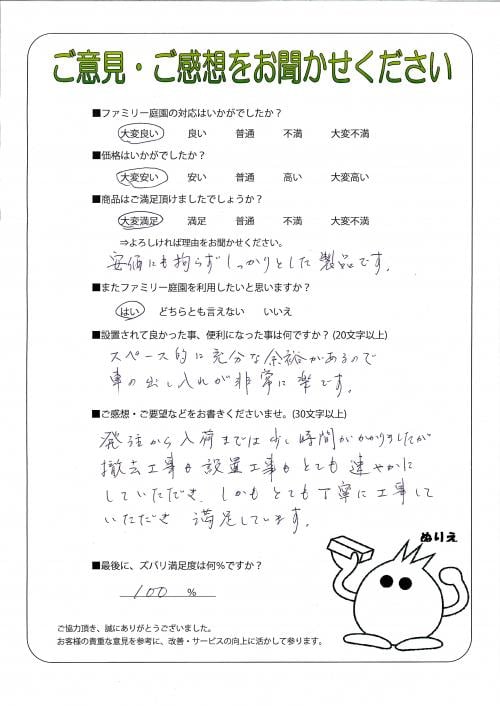 ご意見・ご感想をお聞かせください
■ファミリー庭園の対応はいかがでしたか？
大変良い 良い 普通 不満 大変不満
■価格はいかがでしたか？
大変安い 安い 普通 高い 大変高い
■商品はご満足頂けましたでしょうか？
大変満足 満足 普通 不満 大変不満
⇒よろしければ理由をお聞かせください。
安価にも拘らずしっかりとした製品です。
■またファミリー庭園を利用したいと思いますか？
はい どちらとも言えない いいえ
■設置されて良かった事、便利になった事は何ですか？(20文字以上)
スペース的に充分な余裕があるので
車の出し入れが非常に楽です。
■ご感想・ご要望などをお書きくださいませ。(30文字以上)
発注から入荷までは少し時間がかかりましたが
撤去工事も設置工事もとても速やかに
していただき、しかもとても丁寧に工事して
いただき 満足しています。
ぬりえ
■最後に、ズバリ満足度は何％ですか？
100 ％
ご協力頂き、誠にありがとうございました。
お客様の貴重な意見を参考に、改善・サービスの向上に活かして参ります。